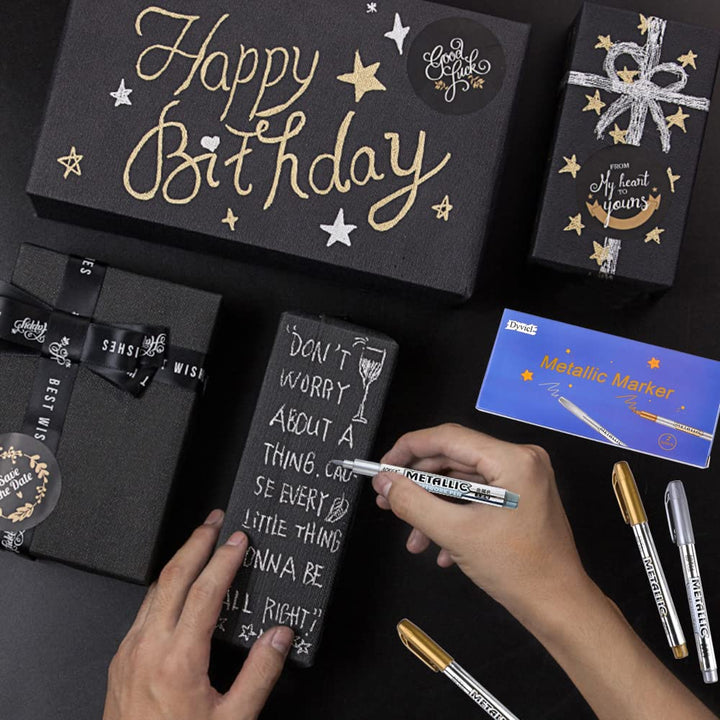 Happy
Birthday
Good
luck
FROM
My heart
TO
yours
Dyviel
Metallic Marker
WISHES
BEST WIS
WISH
Save
the Date
"DON'T
WORRY
ABOUT A
THING. CAU-
SE EVERY
LITTLE THING
GONNA BE
ALL RIGHT!"
METALLIC
METALLIC
METALLIC
METALLIC